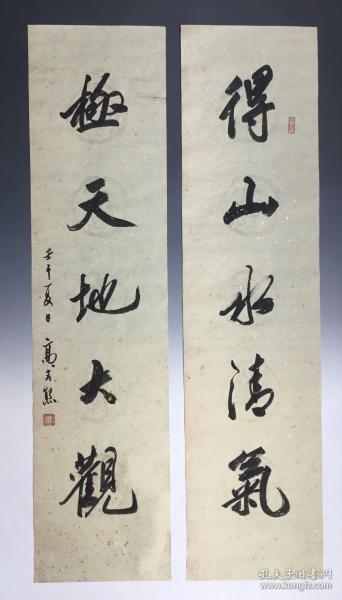 得山水清氣
極天地大觀
壬午夏日高
孔夫子旧书网